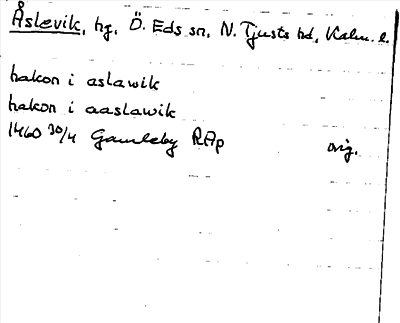 Åslevik, hg, Ö. Eds sn, N. Tjusts hd, Kalm. l.
hakon i aslawik
hakon i aaslawik
1460 30/4 Gamleby RAp orig.